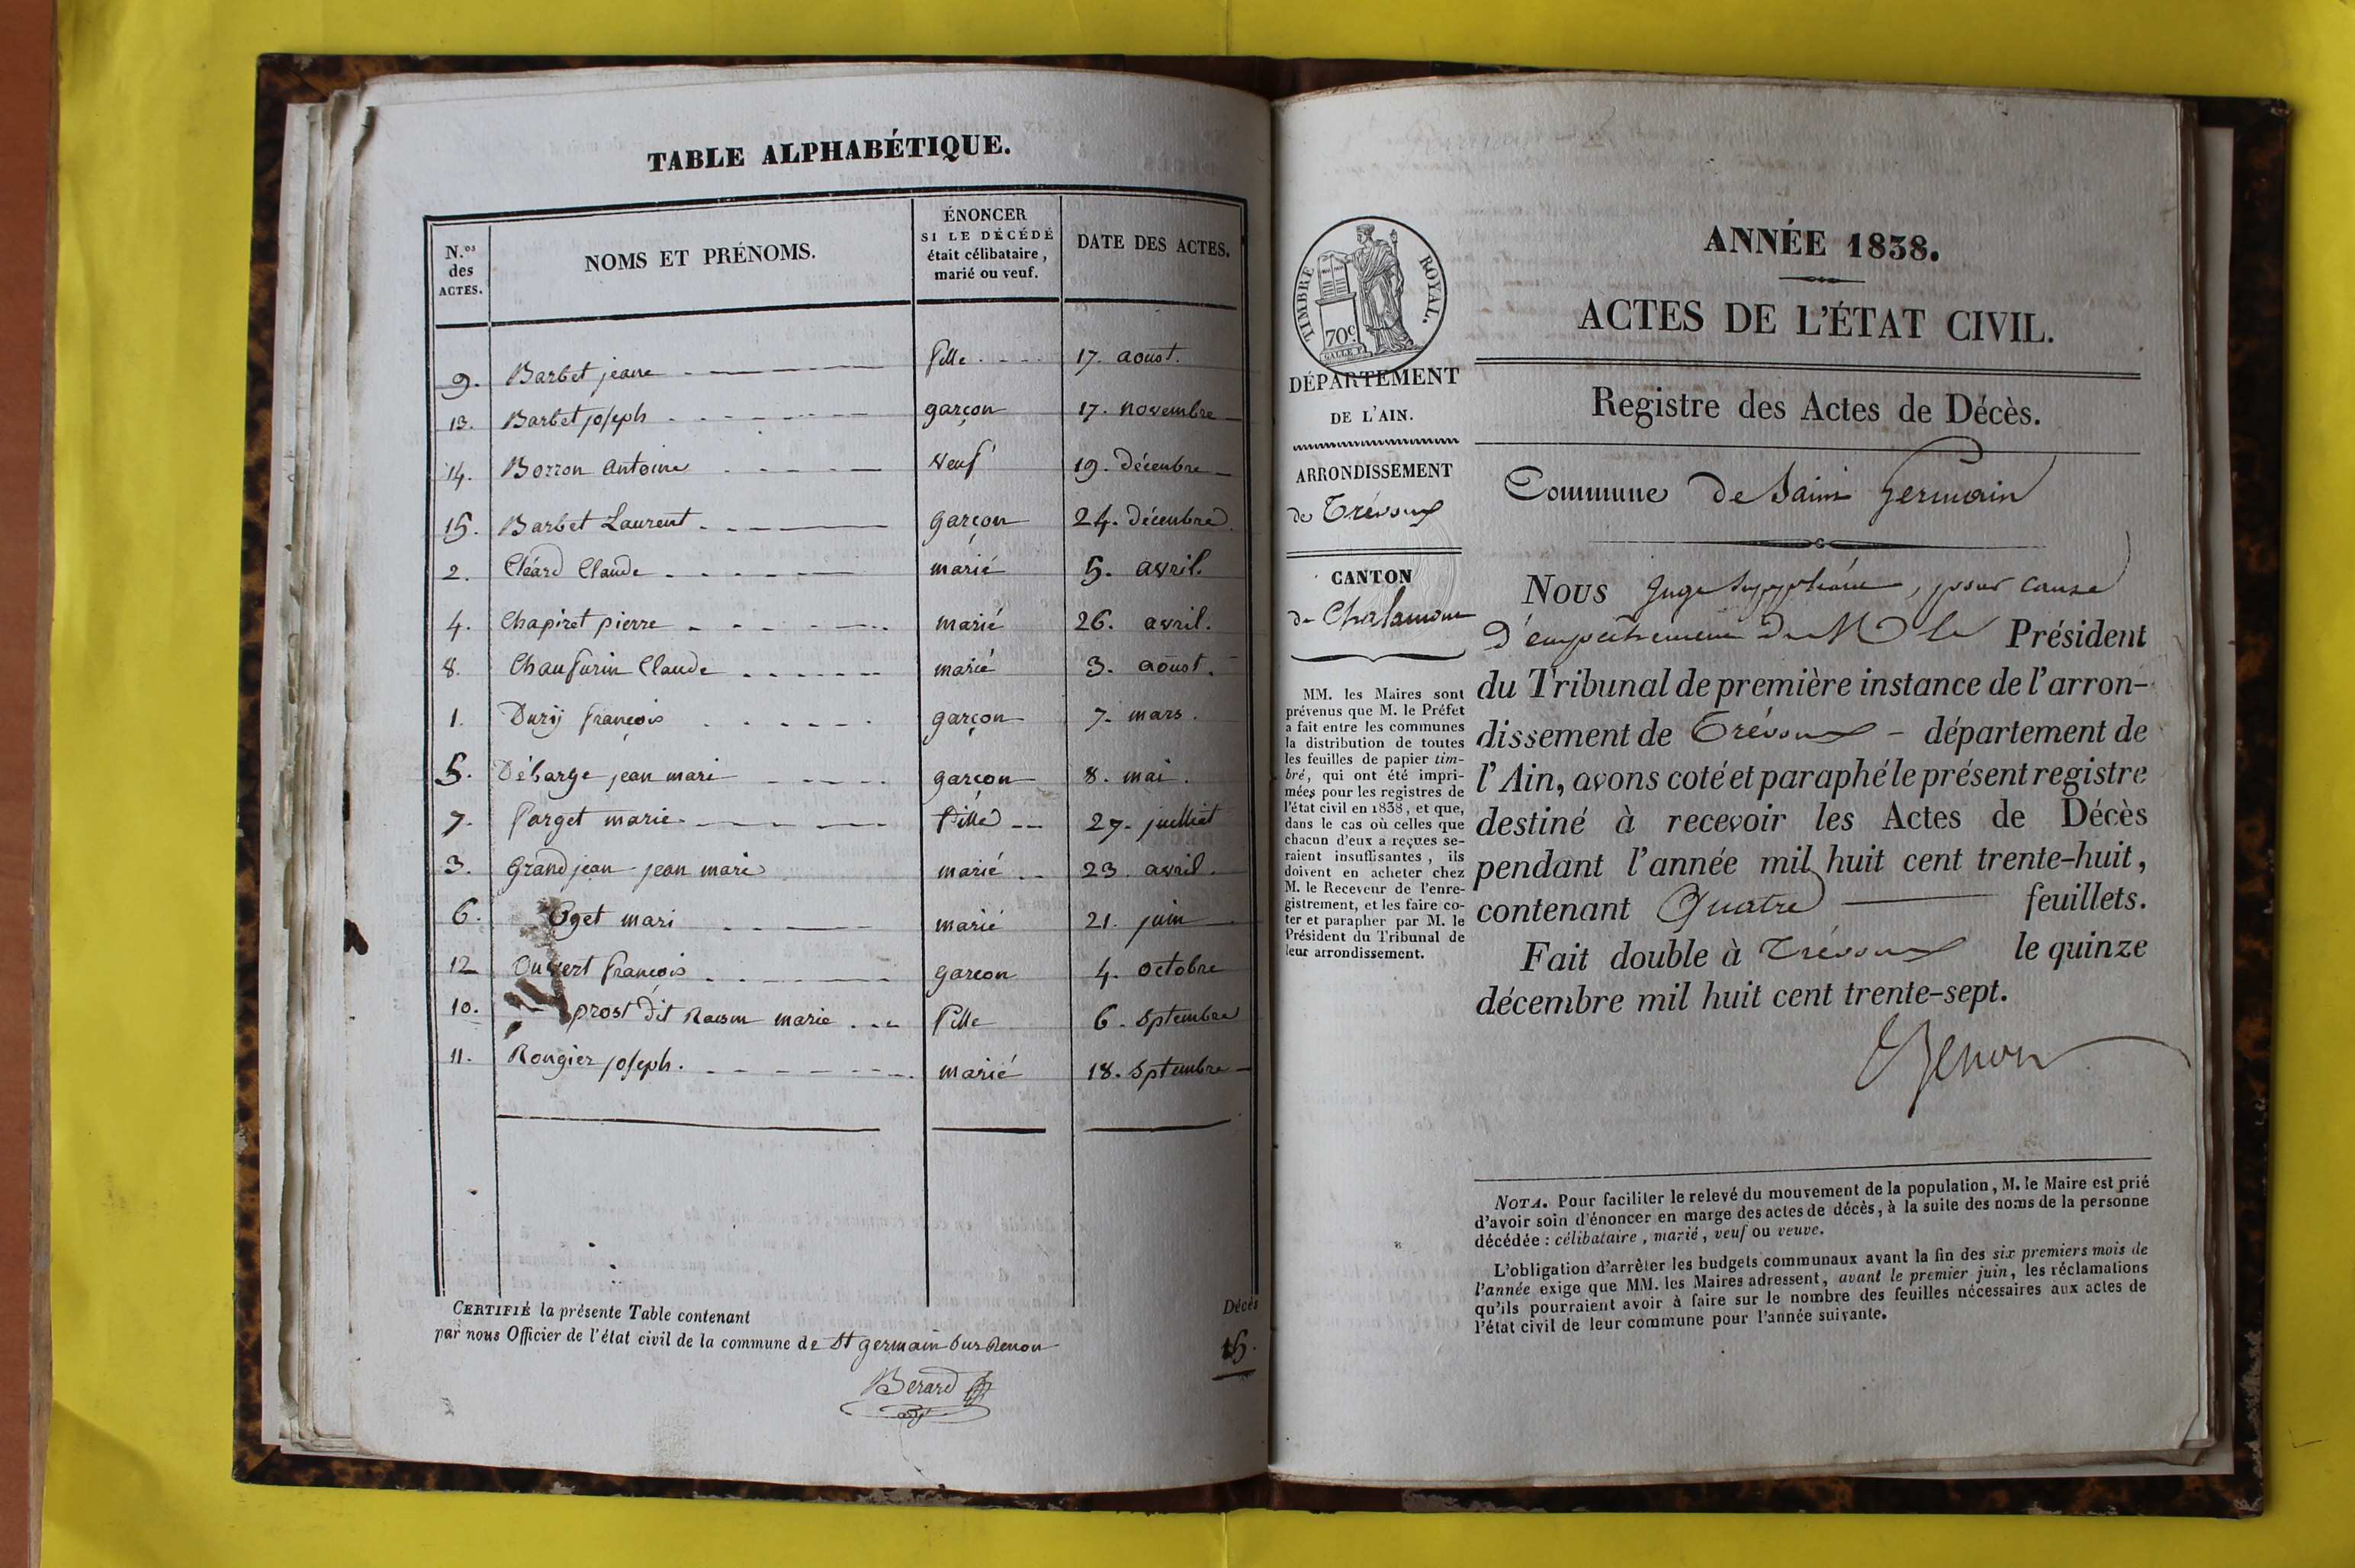 TABLE ALPHABÉTIQUE.
N.os des ACTES.
NOMS ET PRÉNOMS.
ÉNONCER SI LE DÉCÉDÉ était célibataire, marié ou veuf.
DATE DES ACTES.
9. Barbet jeane fille 17. aoust.
13. Barbet joseph garçon 17. novembre
14. Borron Antoine veuf 19. décembre
15. Barbet Laurent garçon 24. décembre
2. Cléard Claude marié 5. avril.
4. Chapiret pierre marié 26. avril.
8. Chanfurin Claude marié 3. aoust.
1. Dury françois garçon 7. mars.
5. Débarge jean mari garçon 8. mai.
7. farget marie fille 27. juilliet
3. grandjean jean marie marié 23. avril.
6. Oget mari marié 21. juin
12 Ouvert françois garçon 4. octobre
10. prost dit Raison marie fille 6. Sptembre
11. Rongier joseph. marié 18. Sptembre
CERTIFIÉ la présente Table contenant Décès
par nous Officier de l'état civil de la commune de St germain sur Renon 15.
Berard
TIMBRE ROYAL.
70c
DÉPARTEMENT
DE L'AIN.
ARRONDISSEMENT
de Trévoux
CANTON
de Chalamont
MM. les Maires sont
prévenus que M. le Préfet
a fait entre les communes
la distribution de toutes
les feuilles de papier tim-
bré, qui ont été impri-
mées pour les registres de
l'état civil en 1838, et que,
dans le cas où celles que
chacun d'eux a reçues se-
raient insuffisantes, ils
doivent en acheter chez
M. le Receveur de l'enre-
gistrement, et les faire co-
ter et parapher par M. le
Président du Tribunal de
leur arrondissement.
ANNÉE 1838.
ACTES DE L'ÉTAT CIVIL.
Registre des Actes de Décès.
Commune de Saint Germain
Nous Juge Suppléant, pour cause
d'empêchement de M le Président
du Tribunal de première instance de l'arron-
dissement de Trévoux - département de
l'Ain, avons coté et paraphé le présent registre
destiné à recevoir les Actes de Décès
pendant l'année mil huit cent trente-huit,
contenant Quatre feuillets.
Fait double à Trévoux le quinze
décembre mil huit cent trente-sept.
NOTA. Pour faciliter le relevé du mouvement de la population, M. le Maire est prié
d'avoir soin d'énoncer en marge des actes de décès, à la suite des noms de la personne
décédée : célibataire, marié, veuf ou veuve.
L'obligation d'arrêter les budgets communaux avant la fin des six premiers mois de
l'année exige que MM. les Maires adressent, avant le premier juin, les réclamations
qu'ils pourraient avoir à faire sur le nombre des feuilles nécessaires aux actes de
l'état civil de leur commune pour l'année suivante.